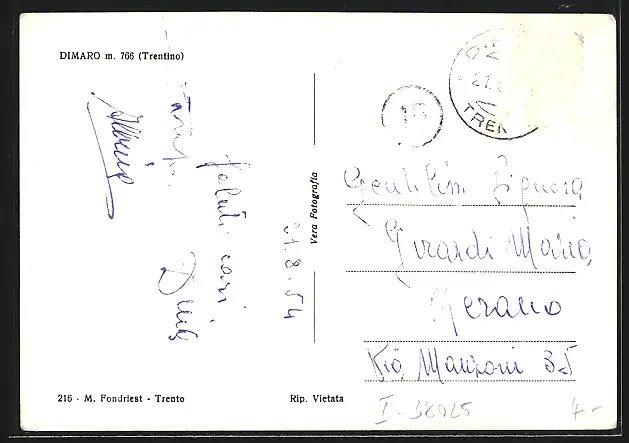 DIMARO m. 766 (Trentino)
21.8.54
Saluti cari
Vera Fotografia
15
21.
TREN
Signora
Girardi Maria
Merano
Via Manzoni 35
216 - M. Fondriest - Trento
Rip. Vietata
I-38025
4-